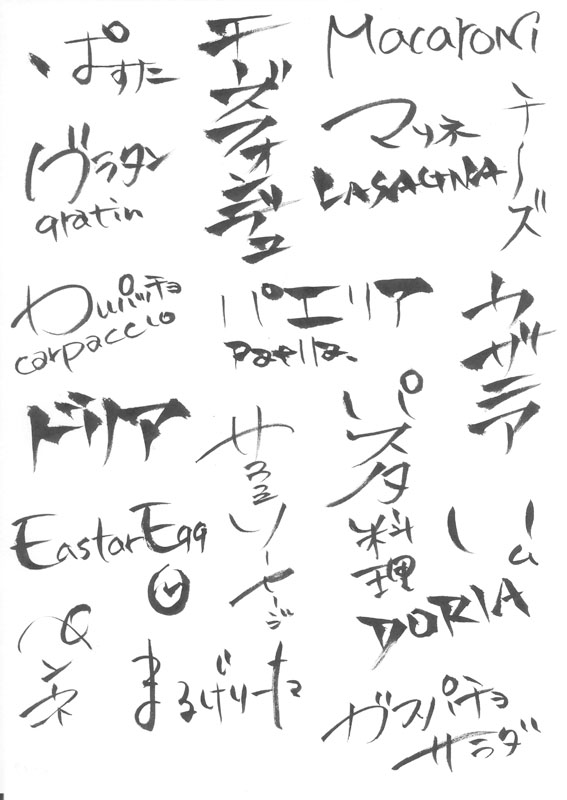 ぱすた
チーズフォンデュ
Macaroni
チーズ
マリネ
LASAGNA
グラタン
gratin
カルパッチョ
carpaccio
パエリア
paella
ラザニア
ドリア
ソーセージ
パスタ料理
EastarEgg
DORIA
ペンネ
まるげりーた
ガスパチョ
サラダ